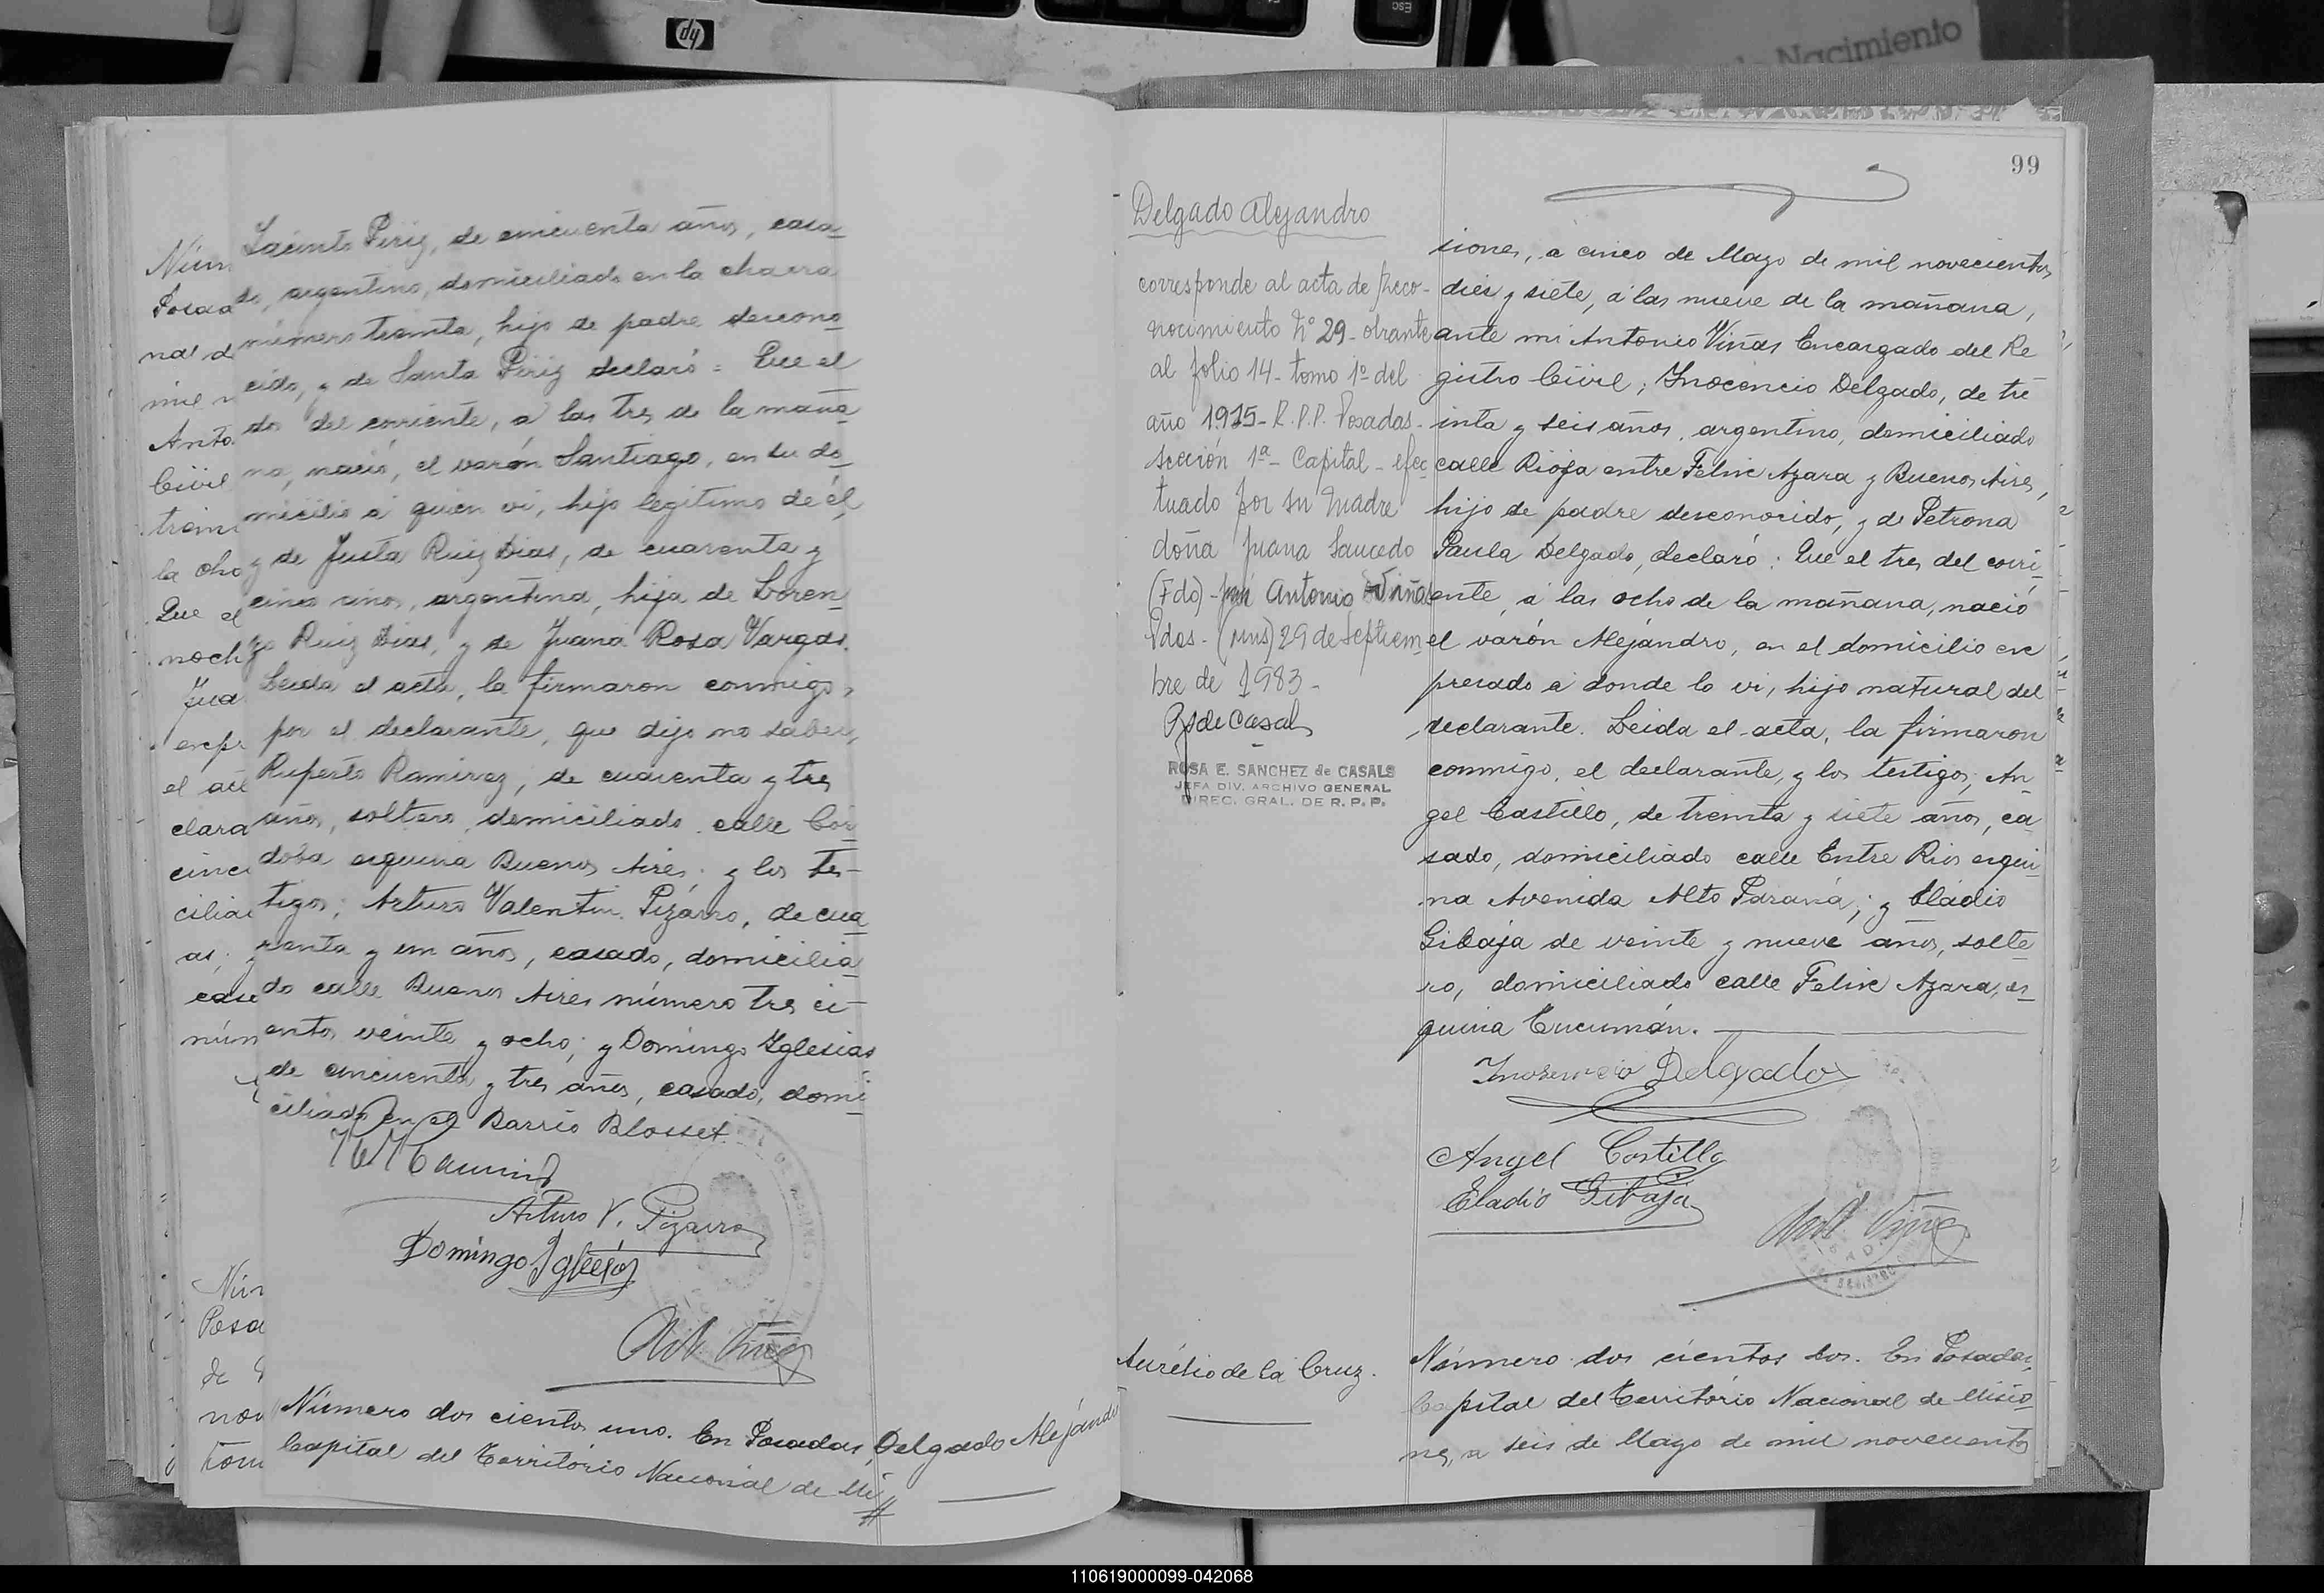 Nacimiento
Núm
Posad
nal d
mil n
Anto
Civil
trein
la cho
Que el
noch
Jua
expr
el act
clara
cinc
cilia
as; y
casa
núm
Nún
Posa
de
nov
Jacinto Piriz, de cincuenta años, casa
do, argentino, domiciliado en la chacra
número treinta, hijo de padre descono
cido, y de Santa Piriz declaró: Que el
dos del corriente, a las tres de la maña
na, nació, el varón Santiago, en su do
micilio a quien vi, hijo legitimo de él,
y de Justa Ruiz Dias, de cuarenta y
cinco años, argentina, hija de Loren
zo Ruiz Dias, y de Juana Rosa Vargas.
Leida el acta, la firmaron conmigo,
por el declarante, que dijo no saber,
Ruperto Ramirez, de cuarenta y tres
años, soltero, domiciliado calle Cór
doba esquina Buenos Aires; y los tes-
tigos; Arturo Valentin Pizarro, de cua
renta y un años, casado, domicilia
do calle Buenos Aires número tres ci
entos veinte y ocho; y Domingo Yglesias
de cincuenta y tres años, casado, domi
ciliado en el Barrio Blosset.
Arturo V. Pizarro
Domingo Yglesias
Ant. Viñas
Número dos cientos uno. En Posadas,
Capital del Territorio Nacional de Mi
Delgado Alejandro
99
Delgado Alejandro
corresponde al acta de Reco-
nocimiento Nº 29 - obrante
al folio 14 - tomo 1º del
año 1915 - R.P.P. Posadas -
sección 1ª - Capital - efec
tuado por su madre
doña Juana Saucedo
(Fdo) - Antonio Viñas
Pdas - (Mns) 29 de Septiem
bre de 1983 -
R S de Casals
ROSA E. SANCHEZ de CASALS
JEFA DIV. ARCHIVO GENERAL
DIREC. GRAL. DE R. P. P.
siones, a cinco de Mayo de mil novecientos
dies y siete, a las nueve de la mañana,
ante mi Antonio Viñas Encargado del Re
gistro Civil; Ynocencio Delgado, de tre
inta y seis años, argentino, domiciliado
calle Rioja entre Felix Azara y Buenos Aires,
hijo de padre desconocido, y de Petrona
Paula Delgado, declaró: Que el tres del corri
ente, a las ocho de la mañana, nació
el varón Alejandro, en el domicilio ex
presado a donde lo vi, hijo natural del
declarante. Leida el acta, la firmaron
conmigo, el declarante, y los testigos; An
gel Castillo, de treinta y siete años, ca
sado, domiciliado calle Entre Rios esqui
na Avenida Alto Paraná; y Eladio
Gibaja de veinte y nueve años, solte
ro, domiciliado calle Felix Azara, es
quina Tucumán.
Ynosencio Delgado
Angel Castillo
Eladio Gibaja
Ant. Viñas
Aurelio de la Cruz.
Número dos cientos dos. En Posadas,
Capital del Territorio Nacional de Misio
nes, a seis de Mayo de mil novecientos
110619000099-042068